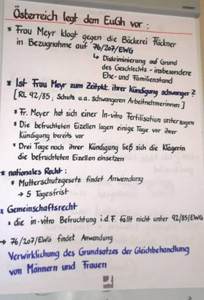 Österreich legt dem EuGh vor:
* Frau Meyr klagt gegen die Bäckerei Flöckner
in Bezugnahme auf 76/207/EWG
↳ Diskriminierung auf Grund
des Geschlechts - insbesondere
Ehe- und Familienstand
* Ist Frau Meyr zum Zeitpkt. ihrer Kündigung schwanger?
[RL 92/85, Schutz v.a. schwangeren Arbeitnehmerinnen]
* Fr. Meyer hat sich einer In-vitro Fertilisation unterzogen
* Die befruchteten Eizellen lagen einige Tage vor ihrer
Kündigung bereits vor
* Drei Tage nach ihrer Kündigung ließ sich die Klägerin
die befruchteten Eizellen einsetzen
* nationales Recht:
* Mutterschutzgesetz findet Anwendung
→ 5 Tagesfrist
* Gemeinschaftsrecht
* die in-vitro Befruchtung i.d.F. fällt nicht unter 92/85/EWG
→ 76/207/EWG findet Anwendung
Verwirklichung des Grundsatzes der Gleichbehandlung
von Männern und Frauen